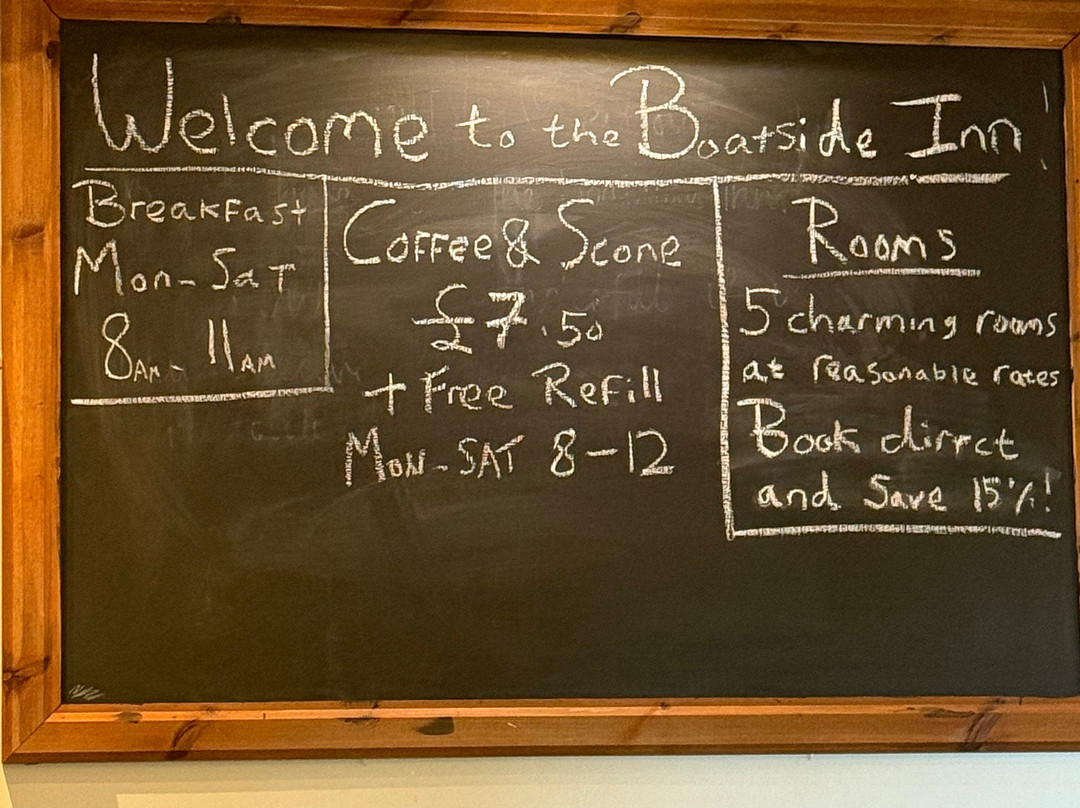 Welcome to the Boatside Inn!
Breakfast
Mon-Sat
8AM- 11AM
Coffee & Scone
£7.50
+ Free Refill
MON-SAT 8-12
Rooms
5 charming rooms
at reasonable rates
Book dirrct
and Save 15%!